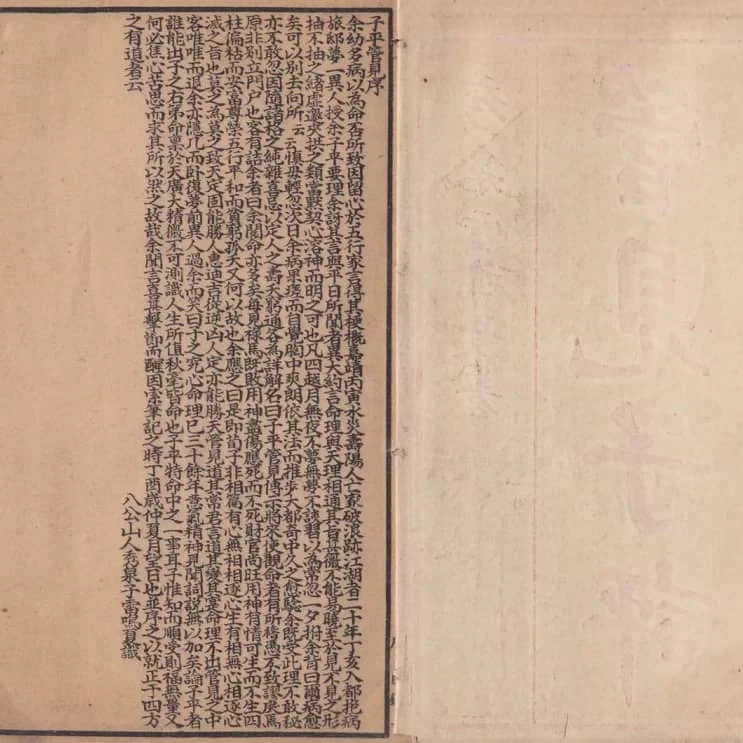 子平管見序
余幼多病以為命否所致因留心於五行家言得其梗概嘉靖丙寅水災壽陽人亡家破浪跡江湖者二十年丁亥入都抱病
旅邸夢一異人授余子平要理余訝其言與平日所聞者異大約言命理與天理相通其旨甚微不能易曉至於見不見之形
抽不抽之緒虛邀夾拱之類當默契心溶神而明之可也凡四越月無夜不夢無夢不談習以為常忽一夕拊余背曰爾病愈
矣可以別去向所云云慎毋輕忽次日余病果瘥而自覺胸中爽朗依其法而推步大都奇中久之愈驗余既受此理不敢秘
亦不敢忽因隨諸格之純雜喜忌以定人之壽夭窮通各為詳解名曰子平管見傳示將來使觀命者有所稽憑不致謬戾焉
原非別立門戶也客有詰余者曰余閱命亦多矣每見祿馬既敗用神盡傷應死而不死財官尚旺用神有情可生而不生四
柱偏枯而安富尊榮五行平和而貧窮孤夭又何以故也余應之曰是即荀子非相篇有心無相相逐心生有相無心相逐心
滅之旨也莫之為莫之致天定固能勝人惠迪吉從逆凶人定亦能勝天管見道其常君言道其變其寔命理不出管見之中
客唯唯而退余亦隱几而臥復夢前異人過余而笑曰子之究心命理已三十餘年意氣精神見聞詞說無以加矣論子平者
誰能出子之右第命稟於天廣大精微不可測識人生所值秋毫皆命也子平特命中之一事耳子惟知而順受則福無量又
何必焦心苦思而求其所以然之故哉余聞言喜甚擊節而醒因索筆記之時丁酉歲仲夏月望日也並序之以就正于四方
之有道者云
八公山人秀泉子雷鳴夏識